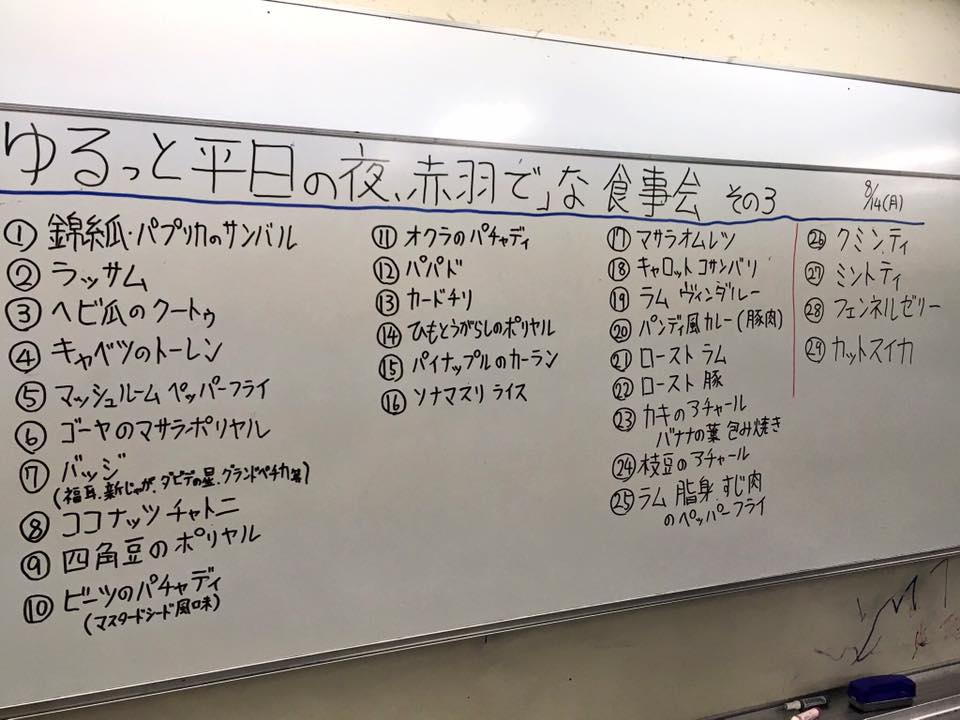 ゆるっと平日の夜、赤羽で」な食事会 その3
8/14(月)
① 錦糸瓜・パプリカのサンバル
② ラッサム
③ ヘビ瓜のクートゥ
④ キャベツのトーレン
⑤ マッシュルーム ペッパーフライ
⑥ ゴーヤのマサラポリヤル
⑦ バッジ
(福耳、新じゃが、ダビデの星、グランドペチカ等)
⑧ ココナッツ チャトニ
⑨ 四角豆のポリヤル
⑩ ビーツのパチャディ
(マスタードシード風味)
⑪ オクラのパチャディ
⑫ パパド
⑬ カードチリ
⑭ ひもとうがらしのポリヤル
⑮ パイナップルのカーラン
⑯ ソナマスリ ライス
⑰ マサラオムレツ
⑱ キャロット コサンバリ
⑲ ラム ヴィンダルー
⑳ パンディ風カレー(豚肉)
㉑ ロースト ラム
㉒ ロースト 豚
㉓ カキのアチャール
バナナの葉 包み焼き
㉔ 枝豆のアチャール
㉕ ラム 脂身 すじ肉
のペッパーフライ
㉖ クミンティ
㉗ ミントティ
㉘ フェンネルゼリー
㉙ カットスイカ